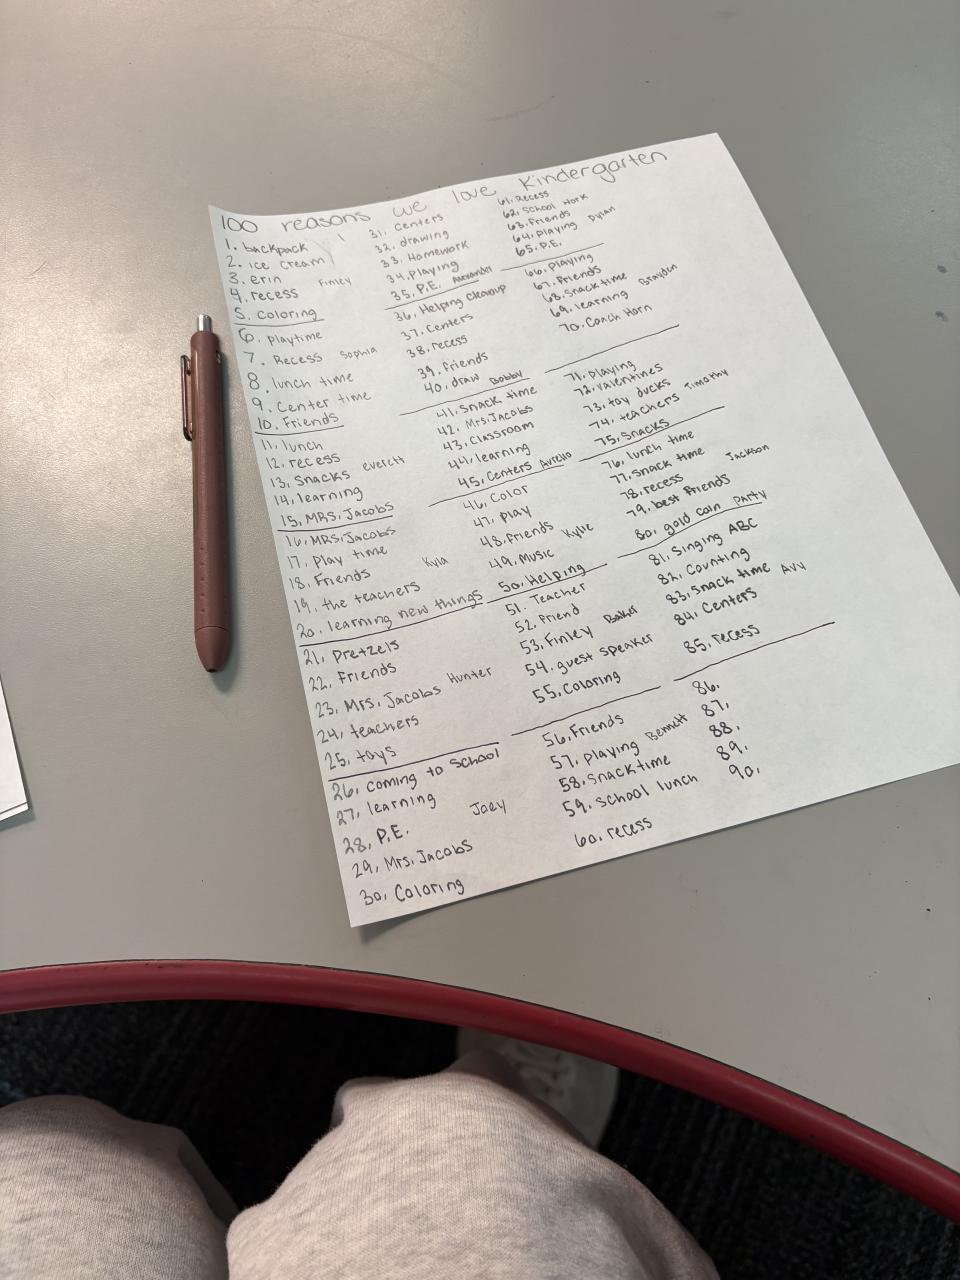 100 reasons we love Kindergarten
1. backpack
2. ice cream
3. erin
4. recess Finley
5. Coloring
6. playtime
7. Recess Sophia
8. lunch time
9. Center time
10. Friends
11. lunch
12. recess
13. Snacks everett
14. learning
15. MRS. Jacobs
16. MRS. Jacobs
17. Play time
18. Friends Kyla
19. the teachers
20. learning new things
21. Pretzels
22. Friends
23. Mrs. Jacobs Hunter
24. teachers
25. toys
26. coming to School
27. learning
28. P.E. Joey
29. Mrs. Jacobs
30. Coloring
31. Centers
32. drawing
33. Homework
34. Playing
35. P.E. Alexander
36. Helping cleanup
37. Centers
38. recess
39. Friends
40. draw Bobby
41. Snack time
42. Mrs. Jacobs
43. Classroom
44. learning
45. Centers Avrello
46. Color
47. Play
48. Friends
49. Music Kylie
50. Helping
51. Teacher
52. Friend
53. Finley Baker
54. guest speaker
55. Coloring
56. Friends
57. playing Bennett
58. snacktime
59. school lunch
60. recess
61. Recess
62. School Work
63. Friends
64. Playing Dylan
65. P.E.
66. Playing
67. Friends
68. Snacktime
69. learning Brayden
70. Coach Horn
71. playing
72. valentines
73. toy ducks
74. teachers Timothy
75. Snacks
76. lunch time
77. snack time
78. recess Jackson
79. best Friends
80. gold coin party
81. Singing ABC
82. Counting
83. Snack time Avy
84. Centers
85. recess
86.
87.
88.
89.
90.